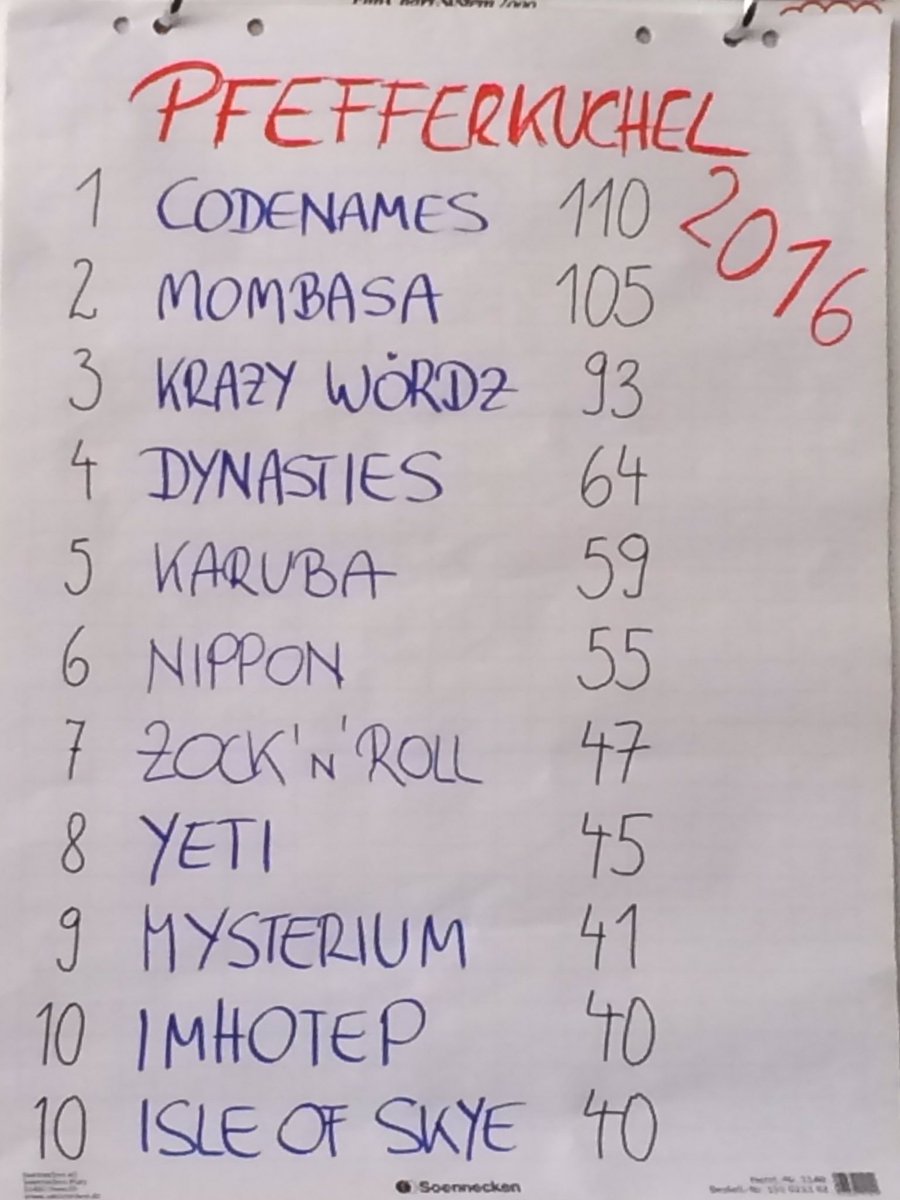 PFEFFERKUCHEL
2016
1 CODENAMES 110
2 MOMBASA 105
3 KRAZY WÖRDZ 93
4 DYNASTIES 64
5 KARUBA 59
6 NIPPON 55
7 ZOCK'N'ROLL 47
8 YETI 45
9 MYSTERIUM 41
10 IMHOTEP 40
10 ISLE OF SKYE 40
Soennecken